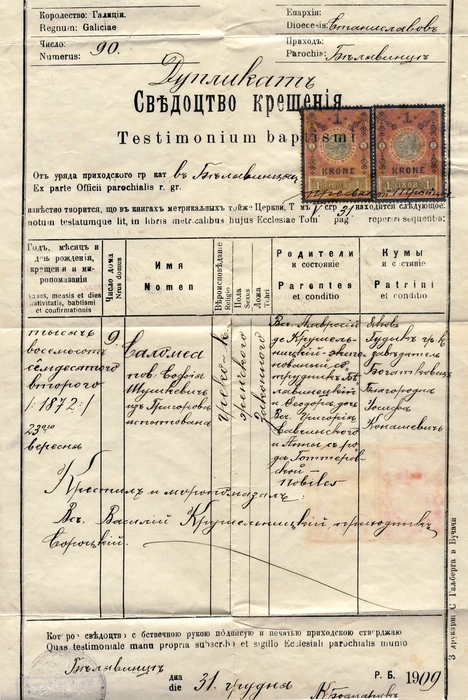 Королество: Галиціи.
Regnum: Galiciae
Число:
Numerus: 90.
Епархія:
Dioecesis: Станиславовъ
Приходъ:
Parochia: Бѣлавинцѣ
Дупликатъ
Свѣдоцтво крещенія
Testimonium baptismi
1 1
KRONE KRONE
1898
Отъ уряда приходского гр кат въ Бѣлавинцяхъ
Ex parte Officii parochialis r. gr.
извѣстно творится, что въ книгахъ метрикальныхъ тойже Церкви, Т V. стр 31 находится слѣдующое:
notum testatumque fit, in libris metricalibus hujus Ecclesiae Tom pag reperiri sequentia:
Годъ, мѣсяцъ и день рожденія, крещенія и миропомазанія
annus, mensis et dies nativitatis, babtismi et confirmationis
Число дома
Nrus domus
Имя
Nomen
Вѣроисповѣданіе
Religio
Пола
Sexus
Ложа
Thori
Родители
и состояніе
Parentes
et conditio
Кумы
и стяніе
Patrini
et conditio
тысячъ
восемьсотъ
семдесятого
второго
/: 1872 :/
23ого
вересня
9
Саломеа
пов. Софія
Шушкевичъ
Григорова
греко-к.
женьского
законного
Вс. Амвросій
де Крушельницкій
и Феодора дочь
Вс. Григорія
и Анны съ рода
nobiles
Яковъ
Гудикъ гр. к.
завѣдатель
Богатковецъ
Благородна
Іосифа
Кунашевичъ
Крестилъ и моропомазалъ:
Вс. Василій Крушельницкій приходникъ
Сороцкій.
Которое свѣдоцтво собственою рукою подписую и печатью приходскою стверджаю
Quas testimoniale manu propria subscribo et sigillo Ecclesiali parochialis munio
Бѣлавинцѣ
дна
die 31. грудня Р. Б. 1909
З друкарнѣ С Гальберга в Бучачи